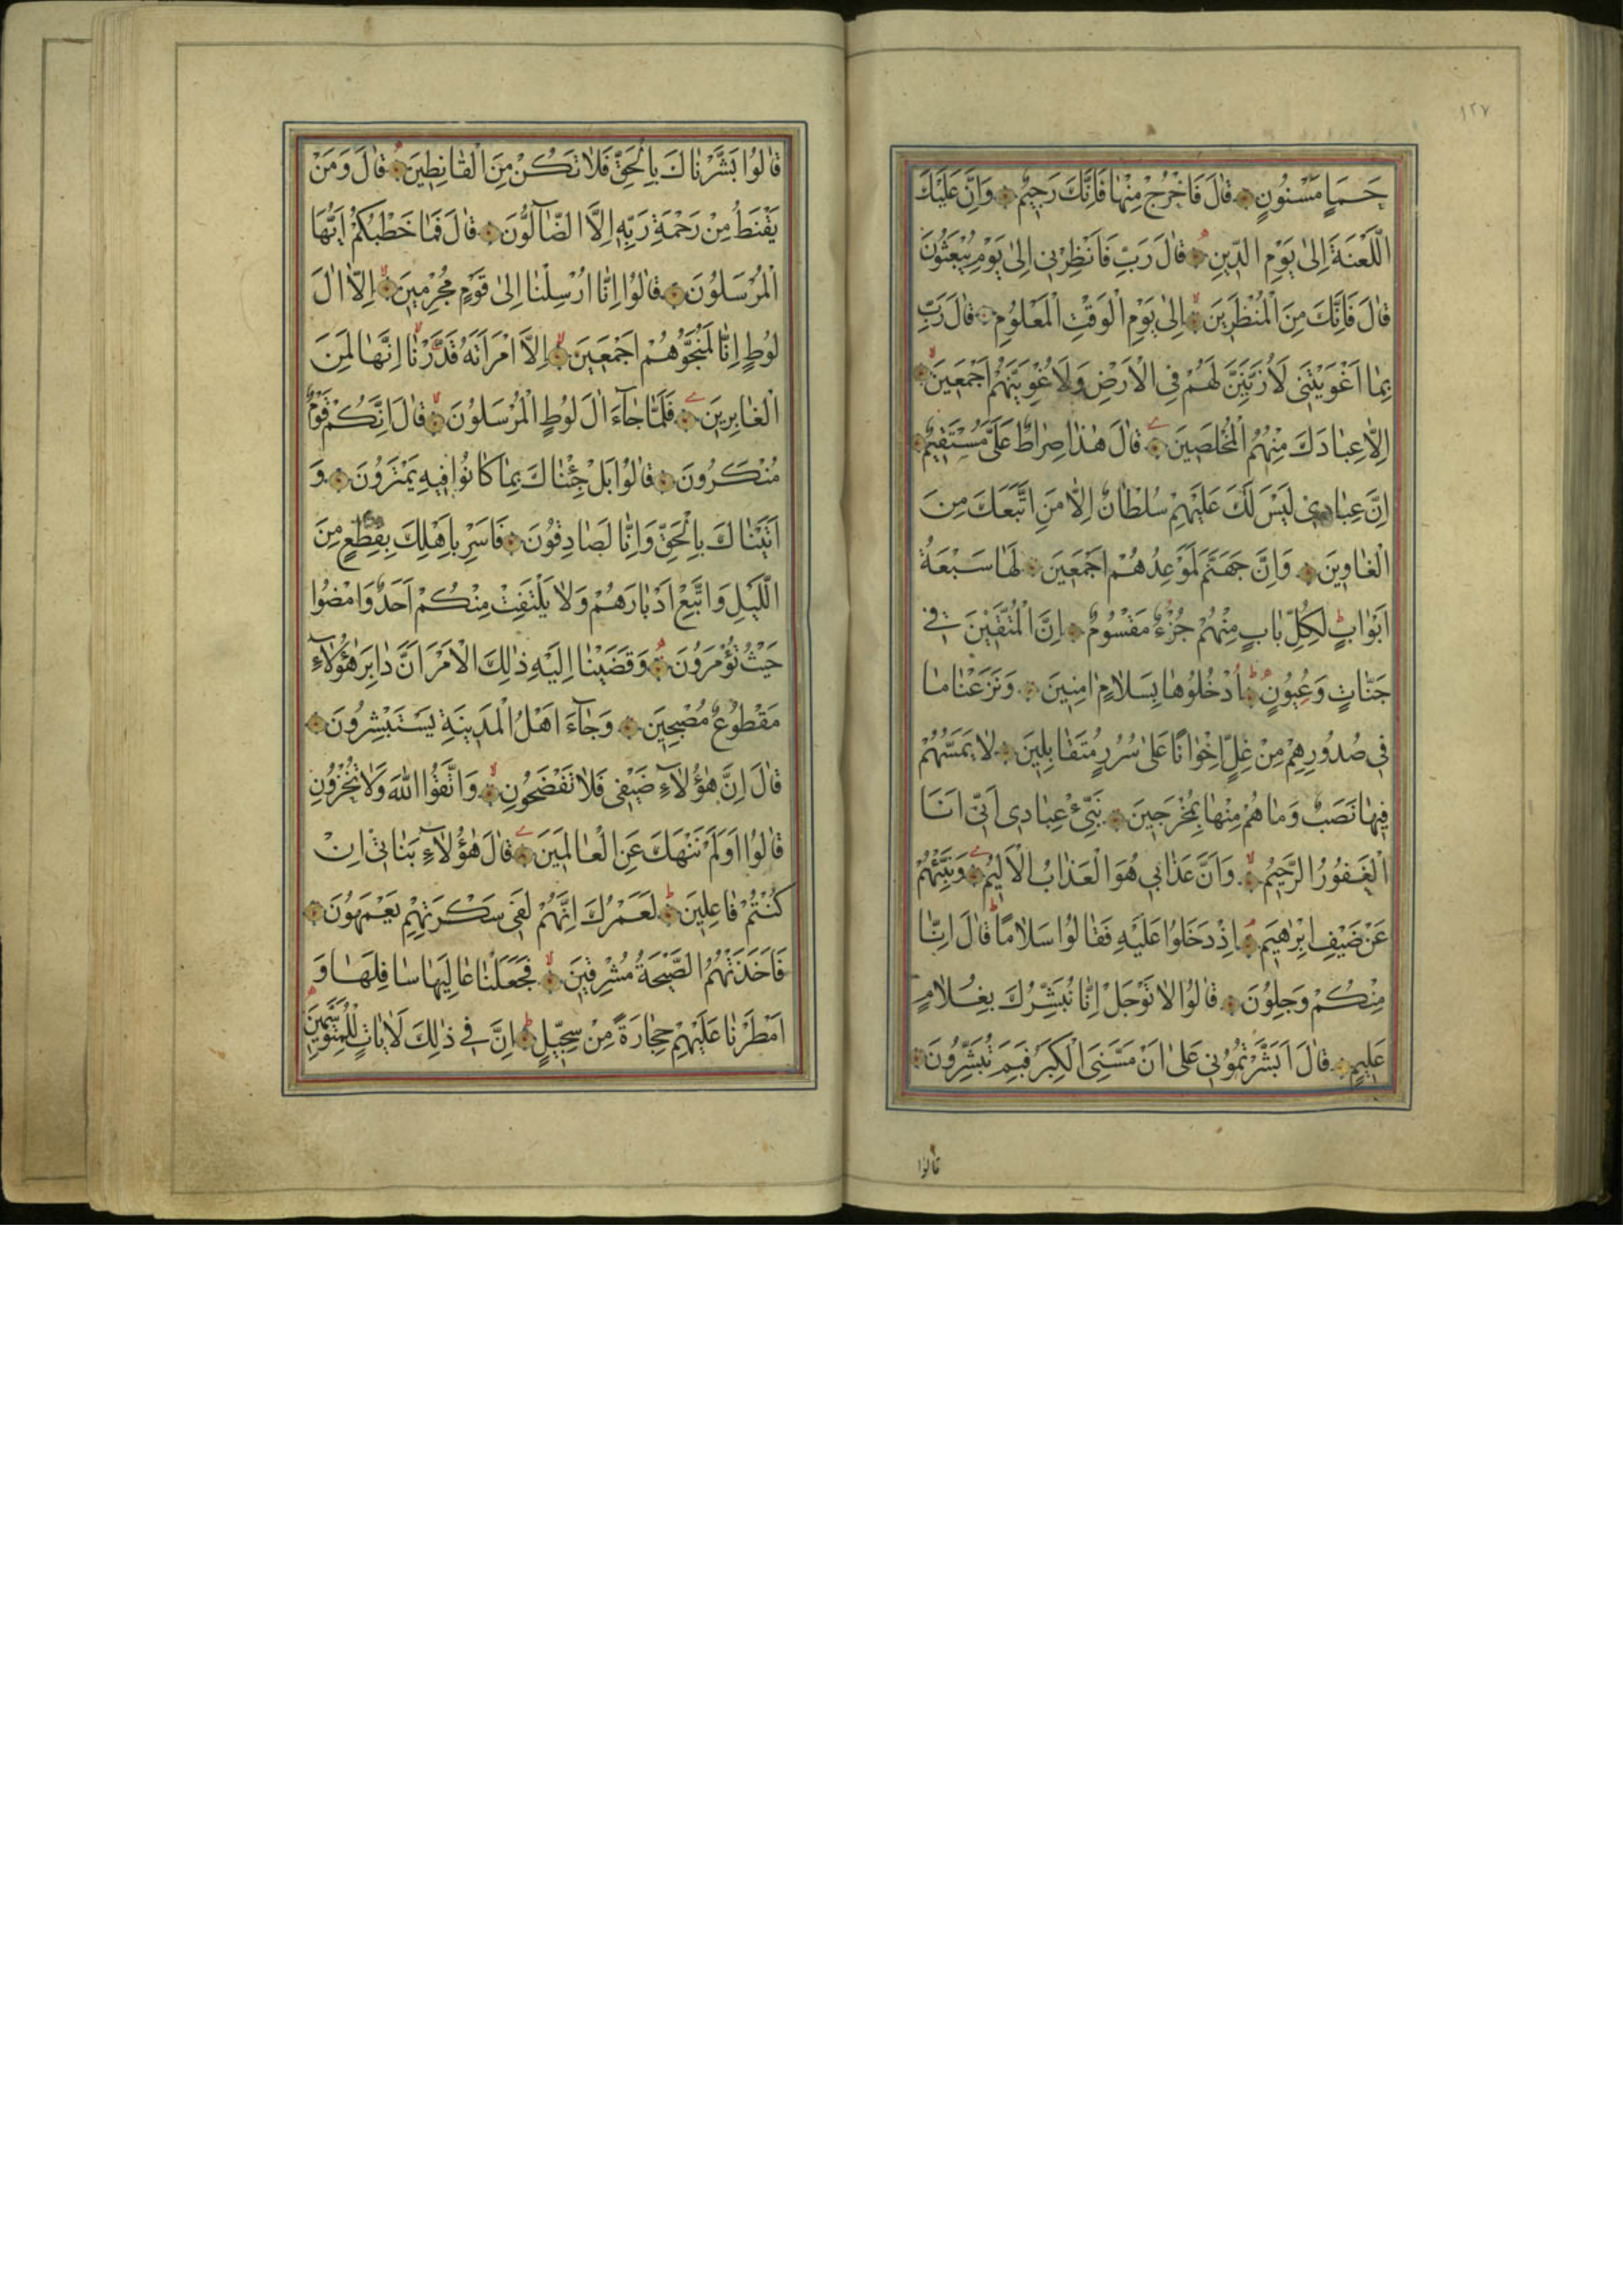 ١٢٧
حَمَإٍ مَسْنُونٍ قَالَ فَاخْرُجْ مِنْهَا فَإِنَّكَ رَجِيمٌ وَإِنَّ عَلَيْكَ
اللَّعْنَةَ إِلَىٰ يَوْمِ الدِّينِ قَالَ رَبِّ فَأَنْظِرْنِي إِلَىٰ يَوْمِ يُبْعَثُونَ
قَالَ فَإِنَّكَ مِنَ الْمُنْظَرِينَ إِلَىٰ يَوْمِ الْوَقْتِ الْمَعْلُومِ قَالَ رَبِّ
بِمَا أَغْوَيْتَنِي لَأُزَيِّنَنَّ لَهُمْ فِي الْأَرْضِ وَلَأُغْوِيَنَّهُمْ أَجْمَعِينَ
إِلَّا عِبَادَكَ مِنْهُمُ الْمُخْلَصِينَ قَالَ هٰذَا صِرَاطٌ عَلَيَّ مُسْتَقِيمٌ
إِنَّ عِبَادِي لَيْسَ لَكَ عَلَيْهِمْ سُلْطَانٌ إِلَّا مَنِ اتَّبَعَكَ مِنَ
الْغَاوِينَ وَإِنَّ جَهَنَّمَ لَمَوْعِدُهُمْ أَجْمَعِينَ لَهَا سَبْعَةُ
أَبْوَابٍ لِكُلِّ بَابٍ مِنْهُمْ جُزْءٌ مَقْسُومٌ إِنَّ الْمُتَّقِينَ فِي
جَنَّاتٍ وَعُيُونٍ اُدْخُلُوهَا بِسَلَامٍ اٰمِنِينَ وَنَزَعْنَا مَا
فِي صُدُورِهِمْ مِنْ غِلٍّ إِخْوَانًا عَلَىٰ سُرُرٍ مُتَقَابِلِينَ لَا يَمَسُّهُمْ
فِيهَا نَصَبٌ وَمَا هُمْ مِنْهَا بِمُخْرَجِينَ نَبِّئْ عِبَادِي أَنِّي أَنَا
الْغَفُورُ الرَّحِيمُ وَأَنَّ عَذَابِي هُوَ الْعَذَابُ الْأَلِيمُ وَنَبِّئْهُمْ
عَنْ ضَيْفِ إِبْرٰهِيمَ إِذْ دَخَلُوا عَلَيْهِ فَقَالُوا سَلَامًا قَالَ إِنَّا
مِنْكُمْ وَجِلُونَ قَالُوا لَا تَوْجَلْ إِنَّا نُبَشِّرُكَ بِغُلَامٍ
عَلِيمٍ قَالَ أَبَشَّرْتُمُونِي عَلَىٰ أَنْ مَسَّنِيَ الْكِبَرُ فَبِمَ تُبَشِّرُونَ
قالوا
قَالُوا بَشَّرْنَاكَ بِالْحَقِّ فَلَا تَكُنْ مِنَ الْقَانِطِينَ قَالَ وَمَنْ
يَقْنَطُ مِنْ رَحْمَةِ رَبِّهِ إِلَّا الضَّآلُّونَ قَالَ فَمَا خَطْبُكُمْ أَيُّهَا
الْمُرْسَلُونَ قَالُوا إِنَّا أُرْسِلْنَا إِلَىٰ قَوْمٍ مُجْرِمِينَ إِلَّا اٰلَ
لُوطٍ إِنَّا لَمُنَجُّوهُمْ أَجْمَعِينَ إِلَّا امْرَأَتَهُ قَدَّرْنَا إِنَّهَا لَمِنَ
الْغَابِرِينَ فَلَمَّا جَآءَ اٰلَ لُوطٍ الْمُرْسَلُونَ قَالَ إِنَّكُمْ قَوْمٌ
مُنْكَرُونَ قَالُوا بَلْ جِئْنَاكَ بِمَا كَانُوا فِيهِ يَمْتَرُونَ وَ
أَتَيْنَاكَ بِالْحَقِّ وَإِنَّا لَصَادِقُونَ فَأَسْرِ بِأَهْلِكَ بِقِطْعٍ مِنَ
اللَّيْلِ وَاتَّبِعْ أَدْبَارَهُمْ وَلَا يَلْتَفِتْ مِنْكُمْ أَحَدٌ وَامْضُوا
حَيْثُ تُؤْمَرُونَ وَقَضَيْنَا إِلَيْهِ ذٰلِكَ الْأَمْرَ أَنَّ دَابِرَ هٰؤُلَآءِ
مَقْطُوعٌ مُصْبِحِينَ وَجَآءَ أَهْلُ الْمَدِينَةِ يَسْتَبْشِرُونَ
قَالَ إِنَّ هٰؤُلَآءِ ضَيْفِي فَلَا تَفْضَحُونِ وَاتَّقُوا اللّٰهَ وَلَا تُخْزُونِ
قَالُوا أَوَلَمْ نَنْهَكَ عَنِ الْعَالَمِينَ قَالَ هٰؤُلَآءِ بَنَاتِي إِنْ
كُنْتُمْ فَاعِلِينَ لَعَمْرُكَ إِنَّهُمْ لَفِي سَكْرَتِهِمْ يَعْمَهُونَ
فَأَخَذَتْهُمُ الصَّيْحَةُ مُشْرِقِينَ فَجَعَلْنَا عَالِيَهَا سَافِلَهَا وَ
أَمْطَرْنَا عَلَيْهِمْ حِجَارَةً مِنْ سِجِّيلٍ إِنَّ فِي ذٰلِكَ لَاٰيَاتٍ لِلْمُتَوَسِّمِينَ